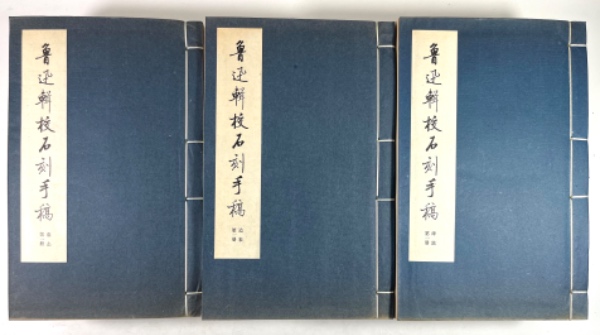 魯迅輯校石刻手稿
魯迅輯校石刻手稿
魯迅輯校石刻手稿